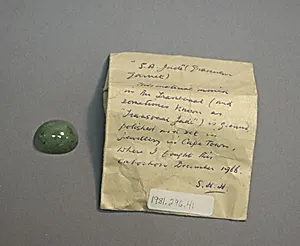 "S.A. Jade" (Transvaal
Garnet)
This material mined
in the Transvaal (and
sometimes known as
"Transvaal Jade") is ground,
polished and set in
jewellery in Cape Town,
where I bought this
cabochon December 1916.
S.H.H.
1981.296.41